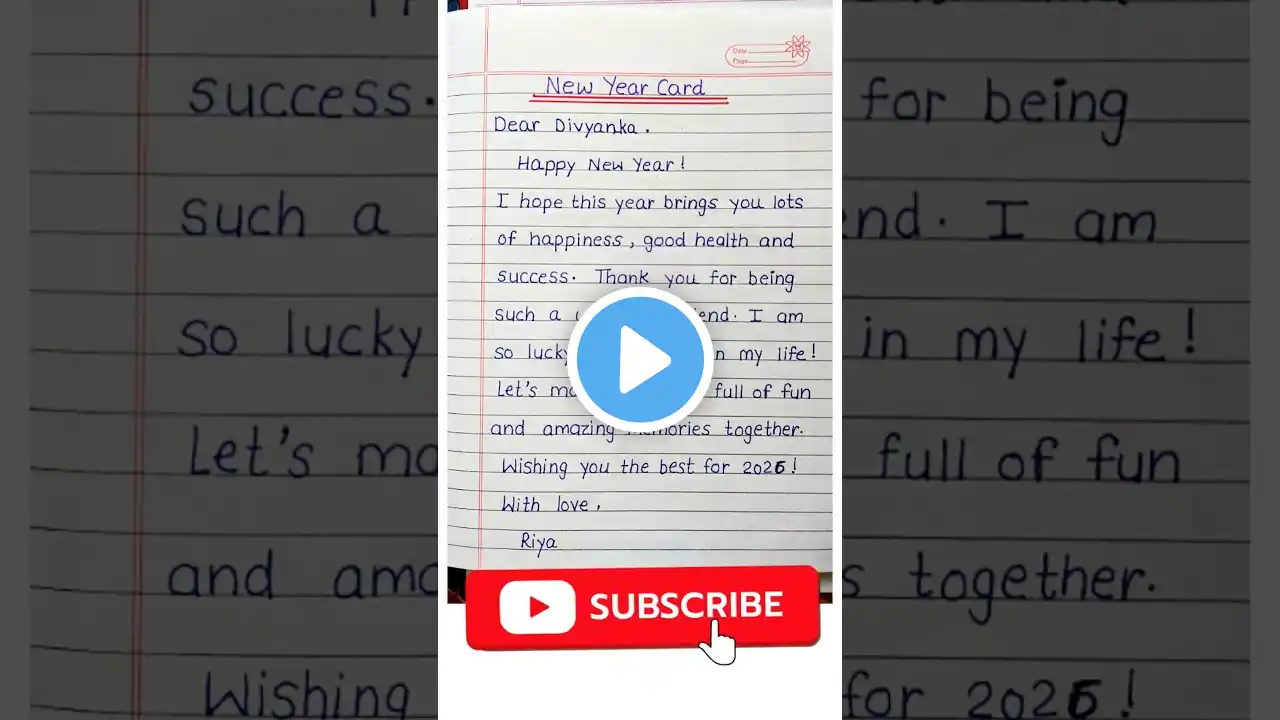 Date
Page
New Year Card
Dear Divyanka.
Happy New Year!
I hope this year brings you lots
of happiness, good health and
success. Thank you for being
such a I am
so lucky in my life!
Let's full of fun
and amazing memories together.
Wishing you the best for 2026!
With love,
Riya
SUBSCRIBE